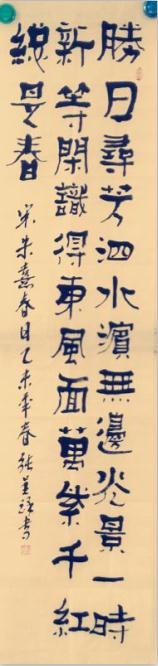 勝日尋芳泗水濱無邊光景一時
新等閑識得東風面萬紫千紅
總是春
宋朱熹春日乙未年春張書